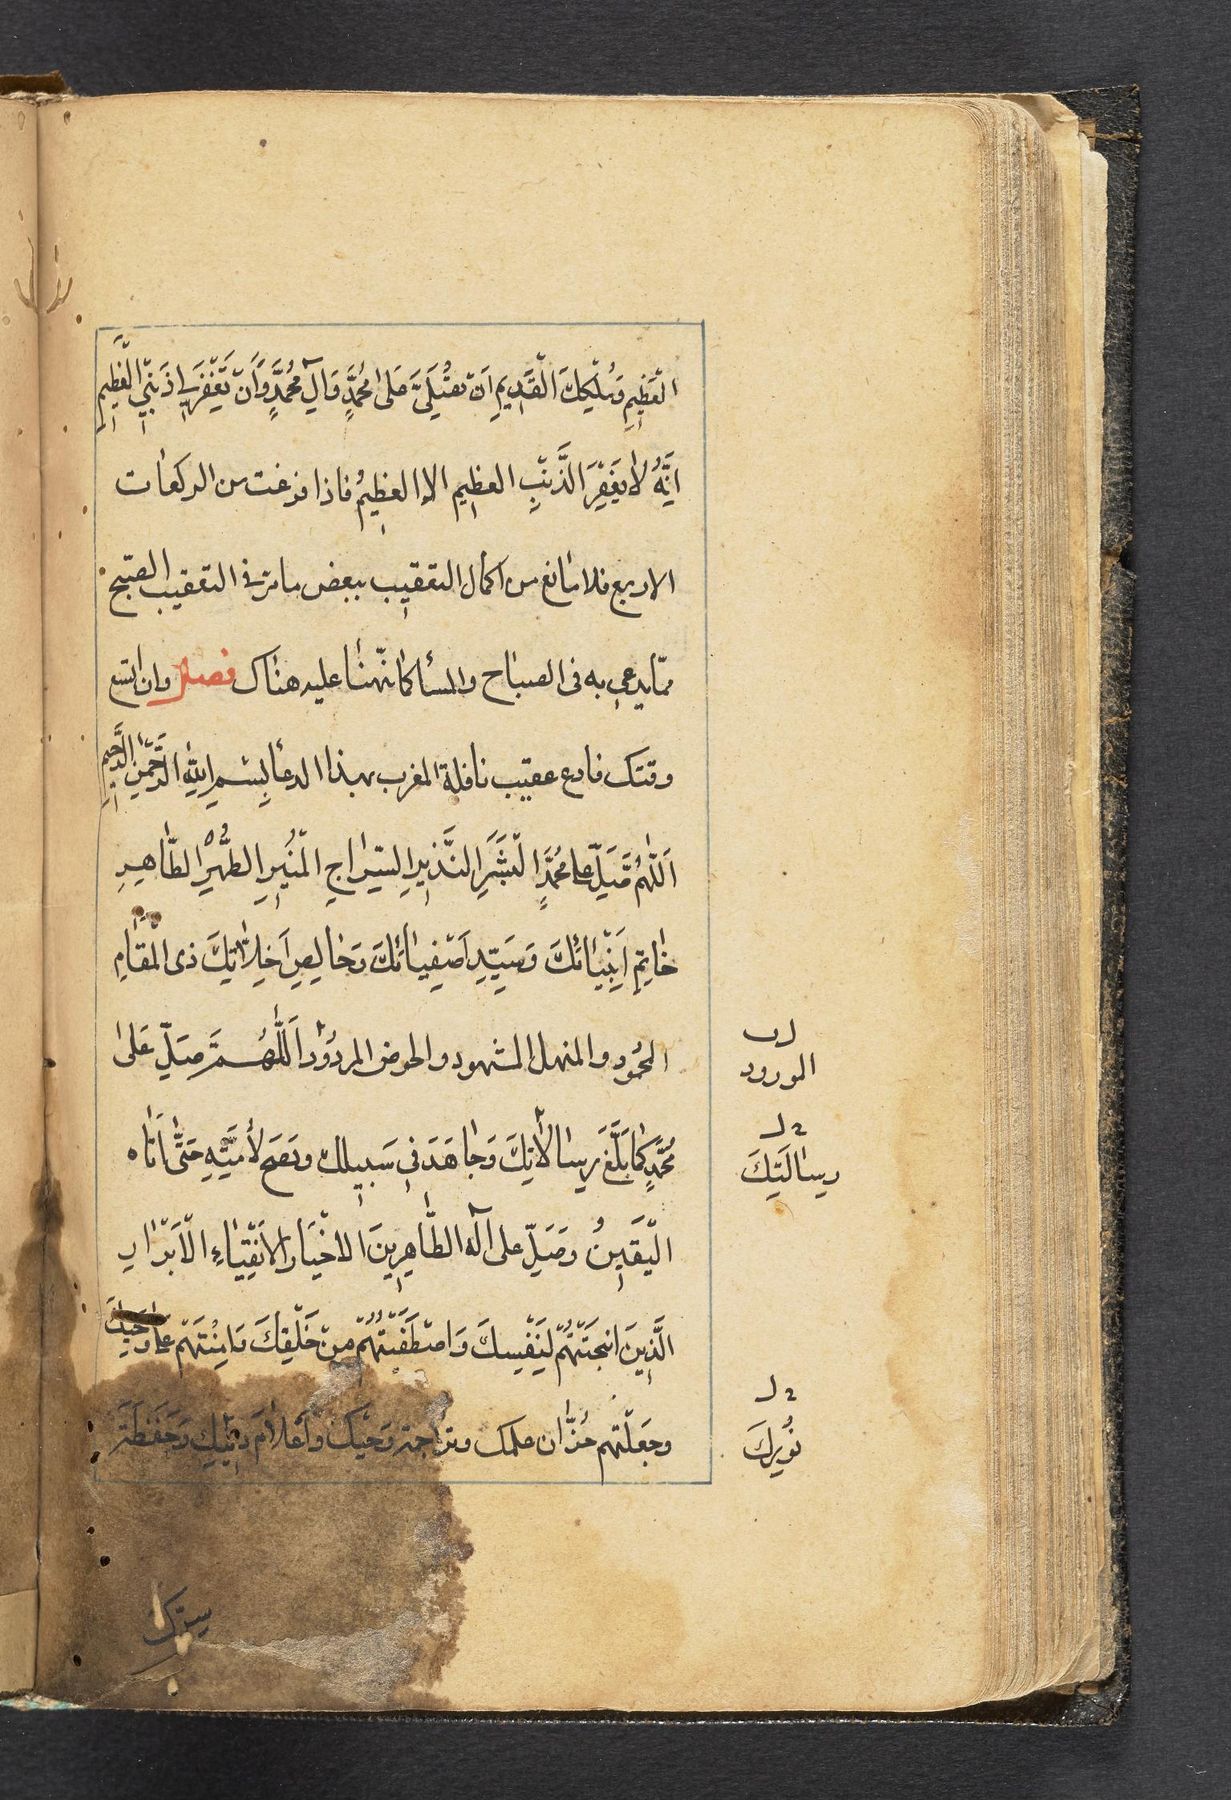 العَظِيمِ وَمُلْكِكَ الْقَدِيمِ اَنْ تُصَلِّيَ عَلىٰ مُحَمَّدٍ وَآلِ مُحَمَّدٍ وَاَنْ تَغْفِرَ لِي ذَنْبِيَ الْعَظِيمِ
اِنَّهُ لاٰ يَغْفِرُ الذَّنْبَ العظِيم الا العظِيمُ فاذا فرغت من الركعات
الاربع فلا مانع من اكمال التعقيب ببعض ما مرّ فى التعقيب الصّبح
ممّا يدعى به فى الصباح والمسأ كما نبّهنا عليه هناك فصل وان اتسع
وقتك فادع عقيب نافلة المغرب بهذا الدعأ بِسْمِ اللهِ الرَّحْمٰنِ الرَّحِيمِ
اَللّٰهُمَّ صَلِّ عَلى مُحَمَّدٍ الْبَشِيرِ النَّذِيرِ السِّرٰاجِ الْمُنِيرِ الطُّهْرِ الطّٰاهِرِ
خٰاتِمِ اَنْبِيٰائِكَ وَسَيِّدِ اَصْفِيٰائِكَ وَخٰالِصِ اَخِلّاٰئِكَ ذى الْمَقٰامِ
المحْمُود والمنهل المشهود والحوض المردُوْد اَللّٰهُمَّ صَلِّ عَلىٰ
مُحَمَّدٍ كَمٰا بَلَّغَ رِسٰالاٰتِكَ وَجٰاهَدَ فِي سَبِيلك ونَصَحَ لأُمَّتِهِ حَتّٰى اَتٰاه
الْيَقِينُ وَصَلِّ على آله الطّٰاهِرِينَ الاَخْيٰارِ الاَتْقِيٰاءِ الْاَبْرٰارِ
الَّذِينَ انتجَبْتَهُمْ لِنَفْسِكَ وَاصْطَفَيْتَهُمْ مِنْ خَلْقِكَ وَامِنْتَهَمْ عَلىٰ وَحْيِكَ
وجَعَلْتَهم خُزّٰان علمك وتراجمة وَحْيك واَعْلاٰمَ دِينِكِ وَحَفَظَةَ
سرّك
ل ب
المورود
خ ل
رِسٰالَتِكَ
خ ل
نُورِكَ